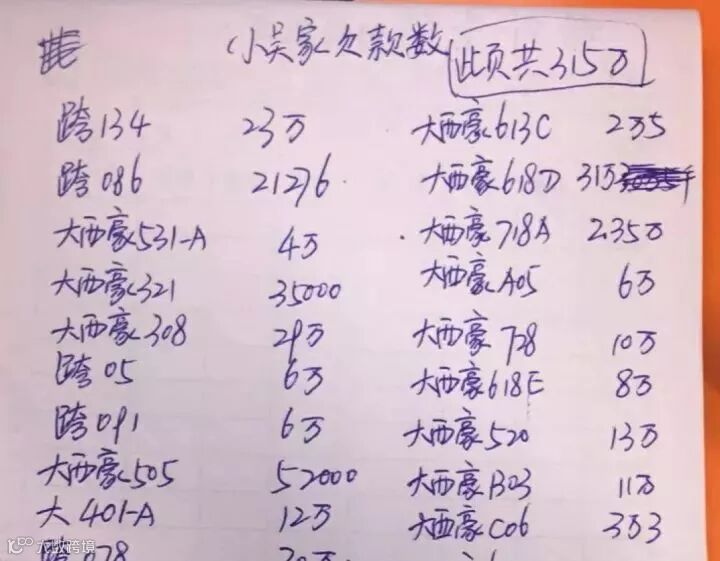 小吴家欠款数 此页共315万
跨134 23万 大西豪613C 2万5
跨086 21276 大西豪618D 31万3
大西豪531-A 4万 大西豪718A 2.35万
大西豪321 35000 大西豪A05 6万
大西豪308 29万 大西豪728 10万
跨05 6万 大西豪618E 8万
跨091 6万 大西豪520 13万
大西豪505 52000 大西豪B03 11万
大401-A 12万 大西豪C06 3万3
跨078
大数跨境